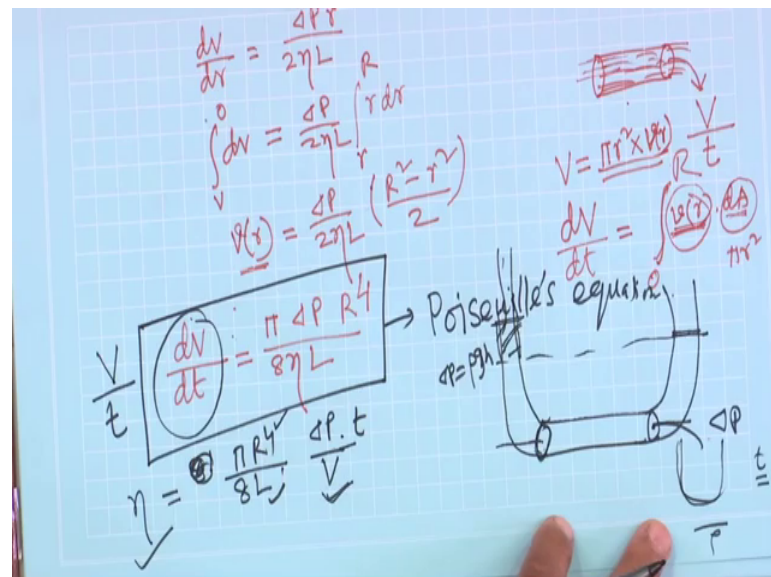 dv/dr = ΔPr/2ηL
∫_v^0 dv = ΔP/2ηL ∫_r^R r dr
v(r) = ΔP/2ηL (R² - r²/2)
V/t
V = πr² × v(r)
dV/dt = ∫_0^R v(r) . dA
πr²
V/t dV/dt = π ΔP R⁴/8ηL → Poiseuille's equation
ΔP = ρgh
η = πR⁴/8L . ΔP. t/V
ΔP
t